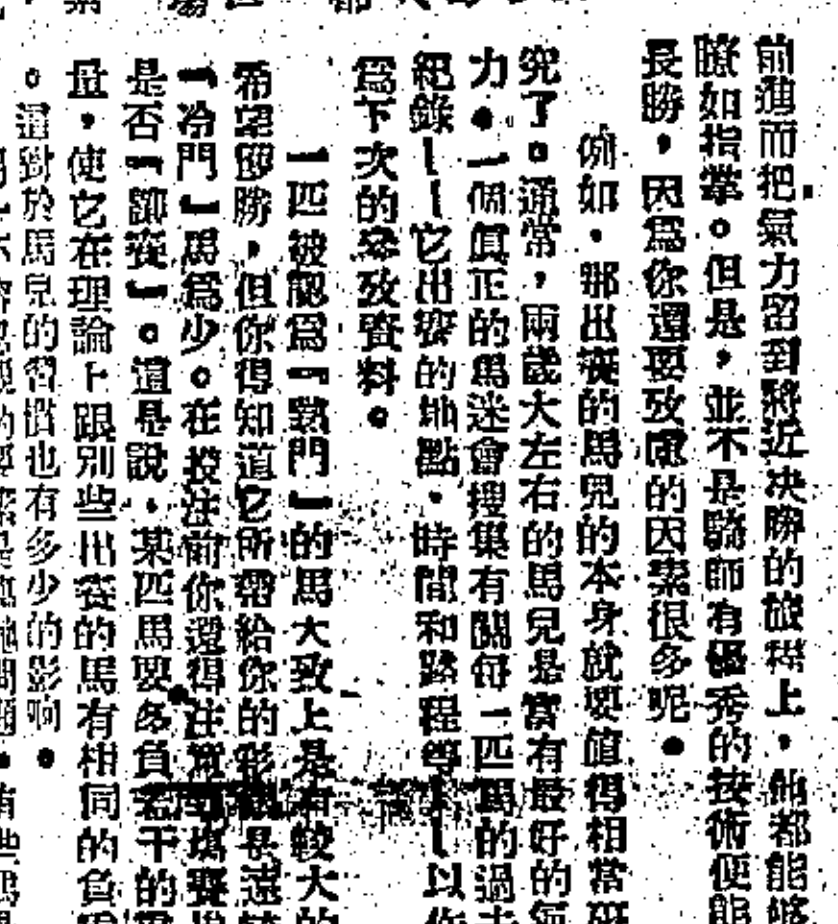 前進而把氣力留到將近决勝的旅程上，他都能够
瞭如指掌。但是，並不是騎師有優秀的技術便能
長勝，因爲你還要攷慮的因素很多呢。
例如，那出賽的馬兒的本身就要值得相當研
究了。通常，兩歲大左右的馬兒是富有最好的
力。一個眞正的馬迷會搜集有關每一匹馬的過去
紀錄——它出賽的地點，時間和路程等——以作
爲下次的叅攷資料。
一匹被認爲「熱門」的馬大致上是有較大的
希望獲勝，但你得知道它所帶給你的彩是遠
「冷門」馬爲少。在投注前你還得注意賽
是否「讓賽」。這是說，某匹馬要多負若干的
量，使它在理論上跟別些出賽的馬有相同的負
。這對於馬兒的習慣也有多少的影响。